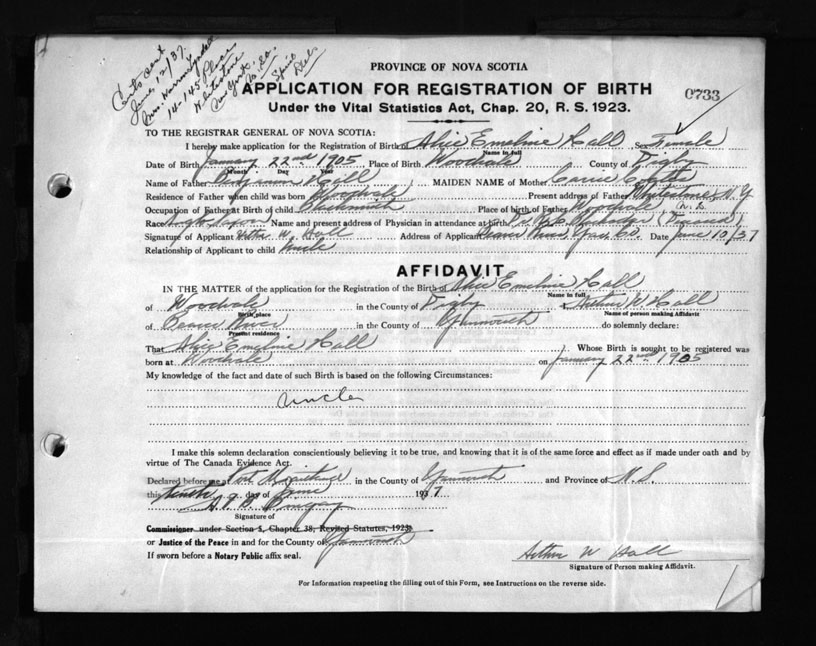 Certs sent
June 12/37
Mrs.
14-145 Place
Whitestone
New York
PROVINCE OF NOVA SCOTIA
APPLICATION FOR REGISTRATION OF BIRTH
0733
Under the Vital Statistics Act, Chap. 20, R. S. 1923.
TO THE REGISTRAR GENERAL OF NOVA SCOTIA:
I hereby make application for the Registration of Birth of Alice Emeline Hall Sex Female
Name in full
Date of Birth January 22nd 1905 Place of Birth Woodvale County of Digby
Month Day Year
Name of Father Hall MAIDEN NAME of Mother Carrie
Residence of Father when child was born Woodvale Present address of Father Whitestone N.Y
Occupation of Father at Birth of child Blacksmith Place of birth of Father Woodvale N.S.
Race Name and present address of Physician in attendance at birth Dr. (Deceased)
Signature of Applicant Arthur W. Hall Address of Applicant Beaver River Yar. Co. Date June 10/37
Relationship of Applicant to child Uncle
AFFIDAVIT
IN THE MATTER of the application for the Registration of the Birth of Alice Emeline Hall
Name in full
of Woodvale in the County of Digby Arthur W. Hall
Birth place Name of person making Affidavit
of Beaver River in the County of Yarmouth do solemnly declare:
Present residence
That Alice Emeline Hall Whose Birth is sought to be registered was
born at Woodvale on January 22nd 1905
My knowledge of the fact and date of such Birth is based on the following Circumstances:
Uncle
I make this solemn declaration conscientiously believing it to be true, and knowing that it is of the same force and effect as if made under oath and by
virtue of The Canada Evidence Act.
Declared before me Port Maitland in the County of Yarmouth and Province of N.S.
this tenth day of June 1937
Signature of
Commissioner under Section 5, Chapter 38, Revised Statutes, 1923
or Justice of the Peace in and for the County of Yarmouth
Arthur W Hall
If sworn before a Notary Public affix seal.
Signature of Person making Affidavit.
For Information respecting the filling out of this Form, see Instructions on the reverse side.